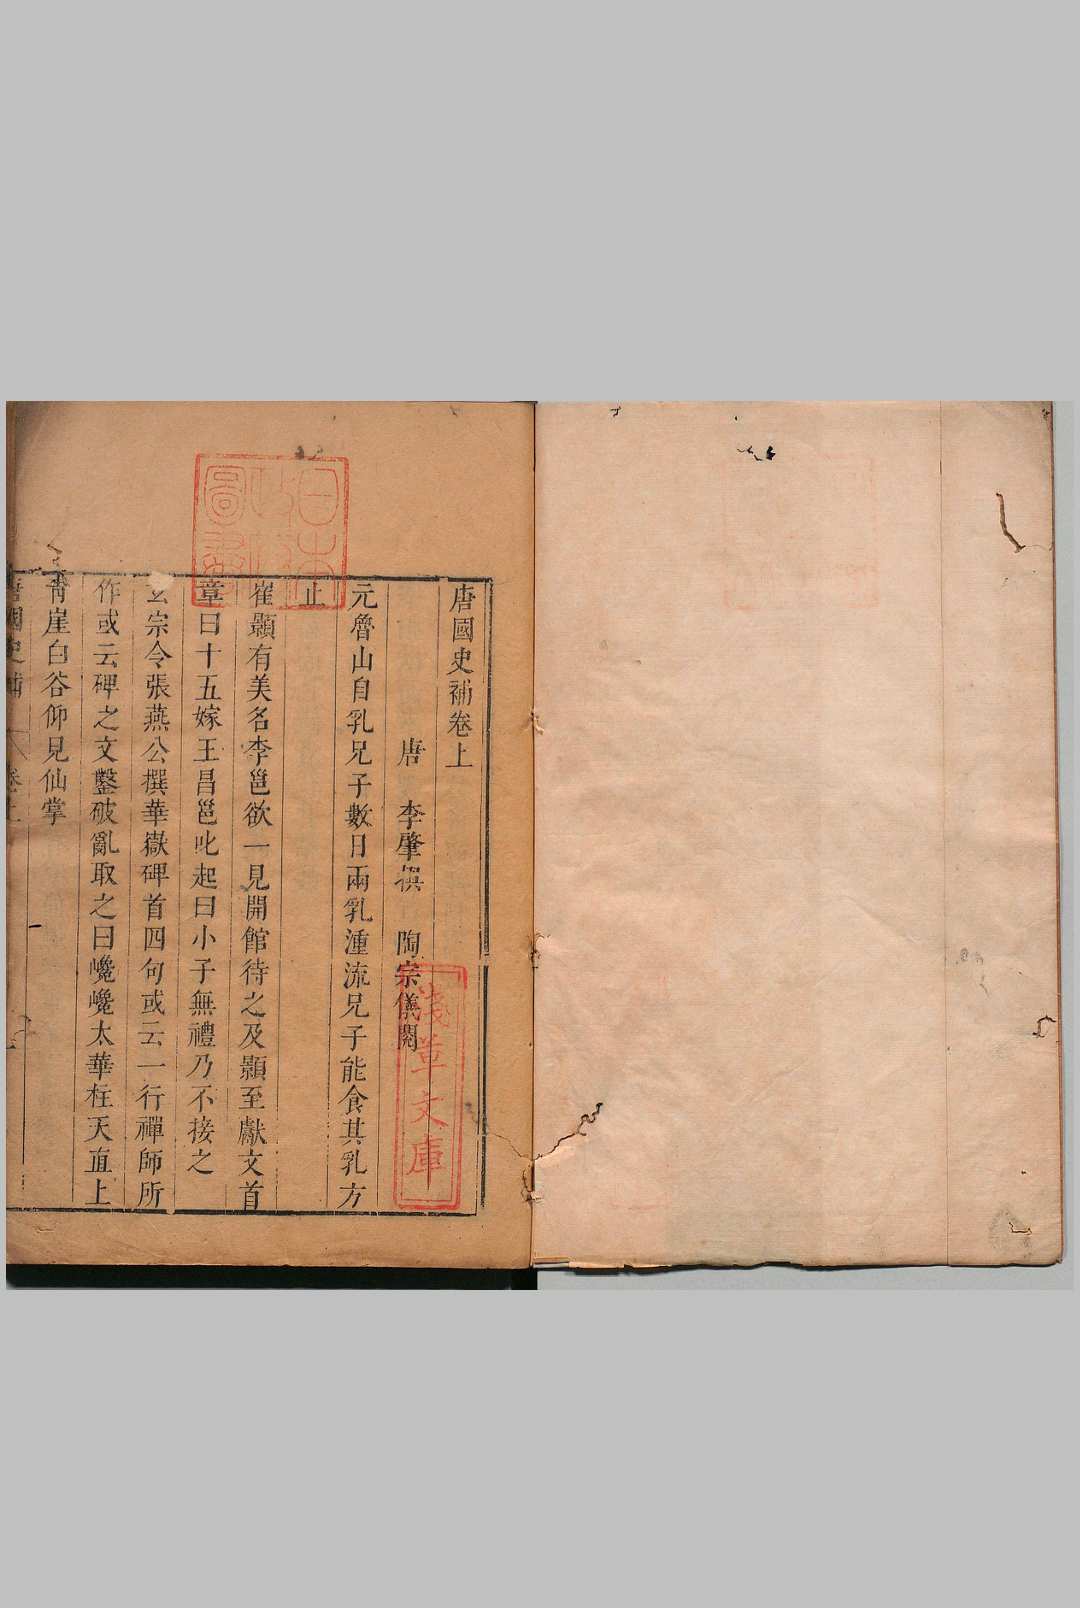 唐國史補卷上
唐 李肇撰 陶宗儀閱
元魯山自乳兄子數日兩乳湩流兄子能食其乳方
止
崔顥有美名李邕欲一見開館待之及顥至獻文首
章曰十五嫁王昌邕叱起曰小子無禮乃不接之
玄宗令張燕公撰華嶽碑首四句或云一行禪師所
作或云碑之文鑿破亂取之曰巉巉太華柱天直上
青崖白谷仰見仙掌
唐國史補 卷上
日本
圖書
淺草文庫